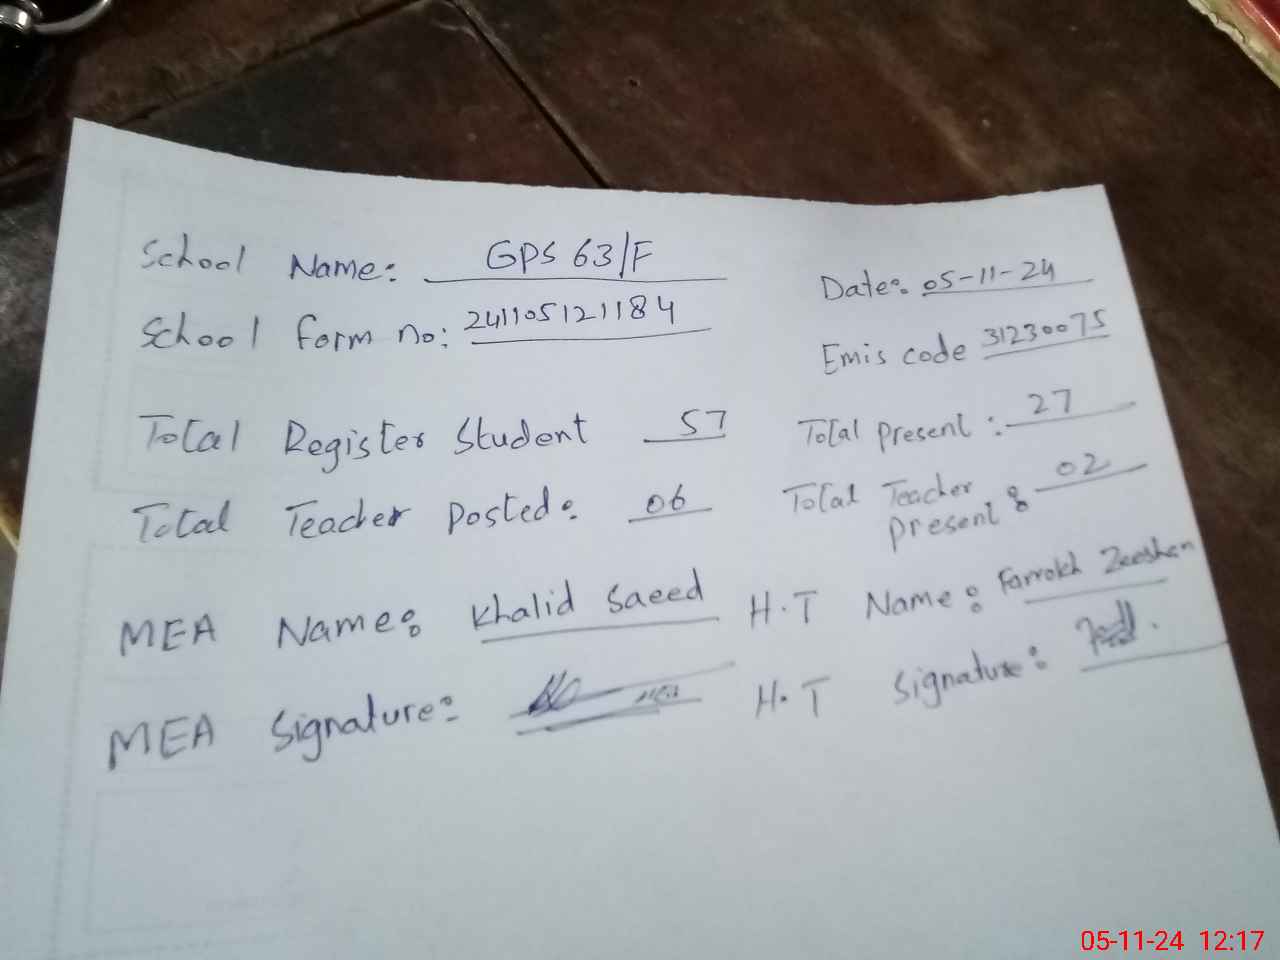 School Name: GPS 63/F
Date: 05-11-24
School form no: 241105121184
Emis code 31230075
Total Register Student 57
Total present: 27
Total Teacher Posted: 06
Total Teacher present: 02
MEA Name: Khalid Saeed
H.T Name: Farrokh Zeeshan
MEA Signature:
H.T Signature:
05-11-24 12:17